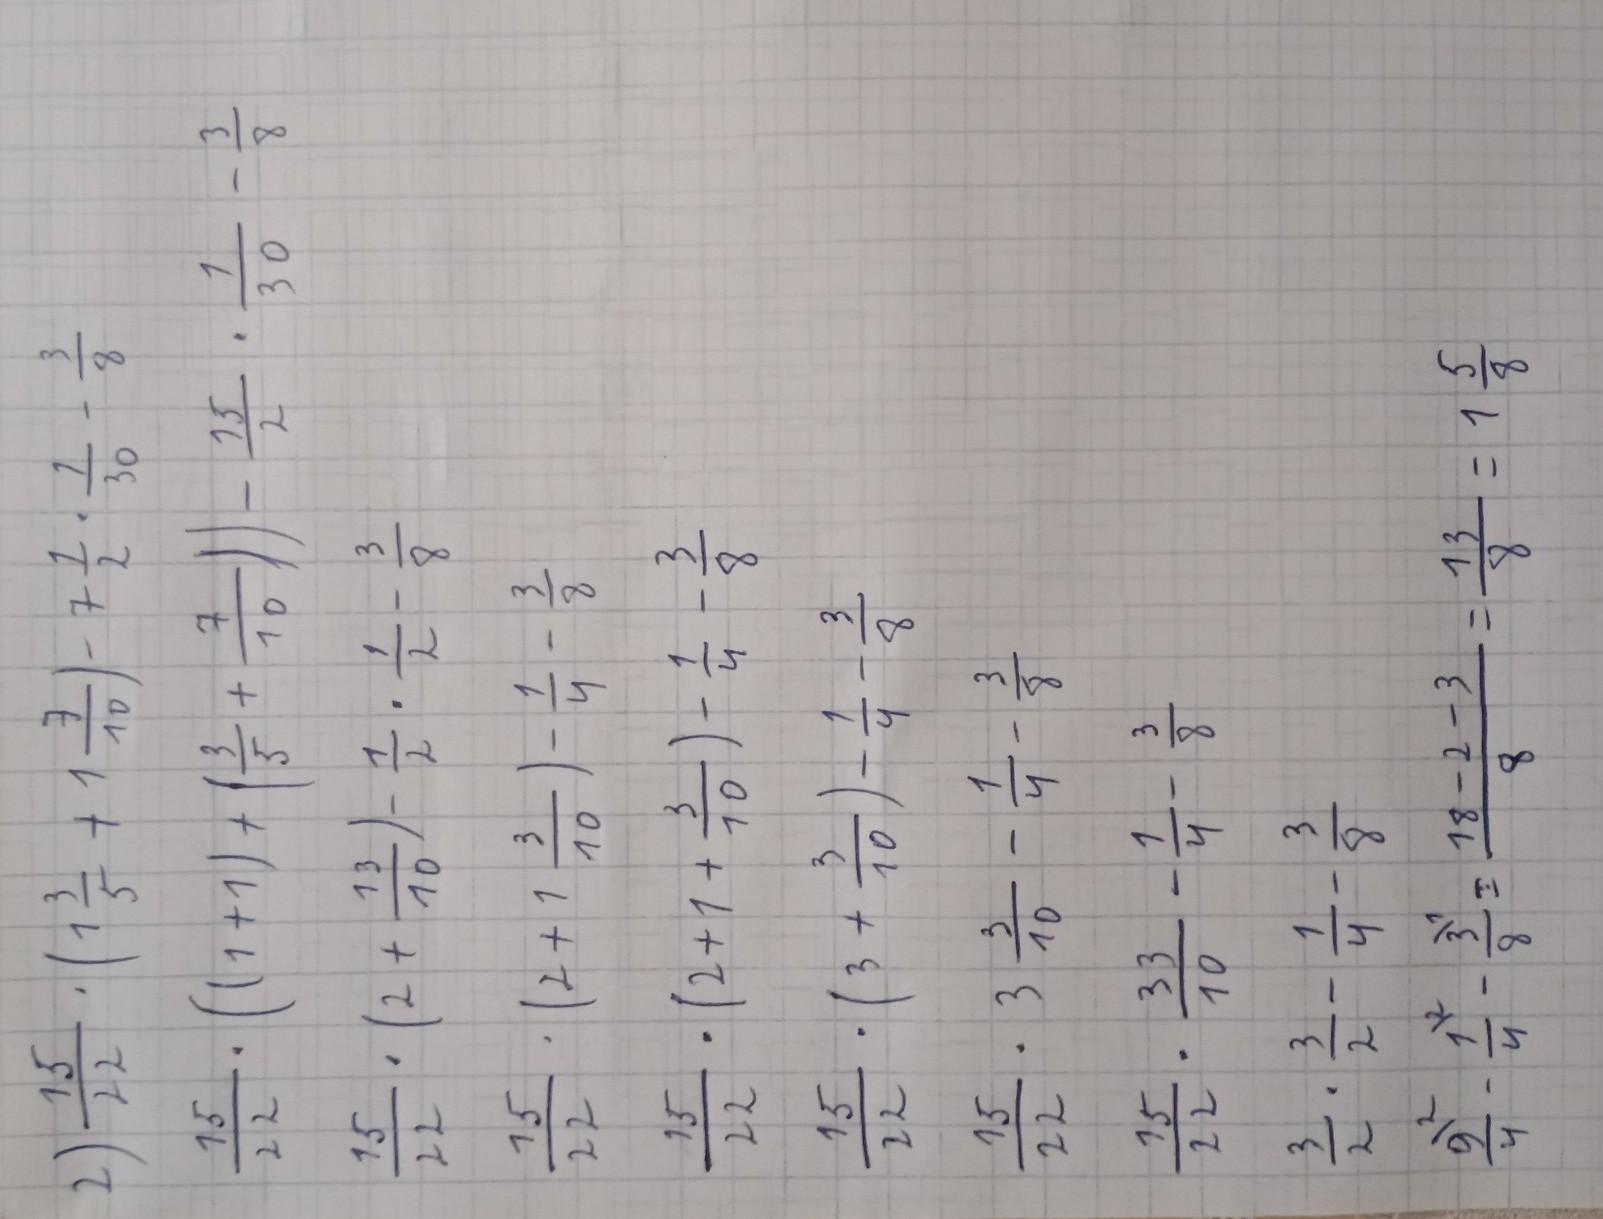 2) 15/22 · (1 3/5 + 1 7/10) - 7 1/2 · 1/30 - 3/8
15/22 · ((1+1) + (3/5 + 7/10)) - 15/2 · 1/30 - 3/8
15/22 · (2 + 13/10) - 1/2 · 1/2 - 3/8
15/22 · (2 + 1 3/10) - 1/4 - 3/8
15/22 · (2 + 1 + 3/10) - 1/4 - 3/8
15/22 · (3 + 3/10) - 1/4 - 3/8
15/22 · 3 3/10 - 1/4 - 3/8
15/22 · 33/10 - 1/4 - 3/8
3/2 · 3/2 - 1/4 - 3/8
9\2/4 - 1\2/4 - 3\1/8 = 18-2-3/8 = 13/8 = 1 5/8